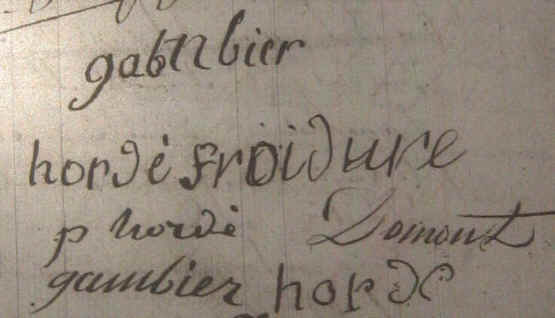 gabnbier
hordé froidure
p hordé Domont
gambier hordé